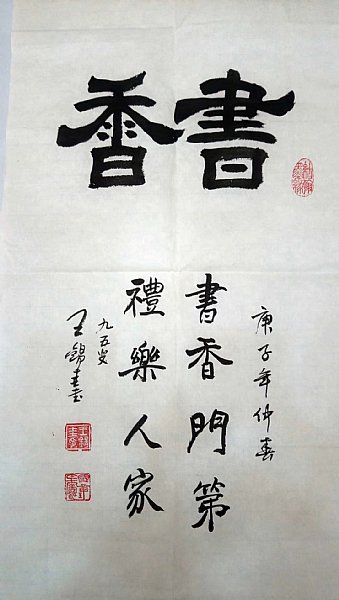 書香
庚子年仲春
書香門第
禮樂人家
九五叟
王錫生書